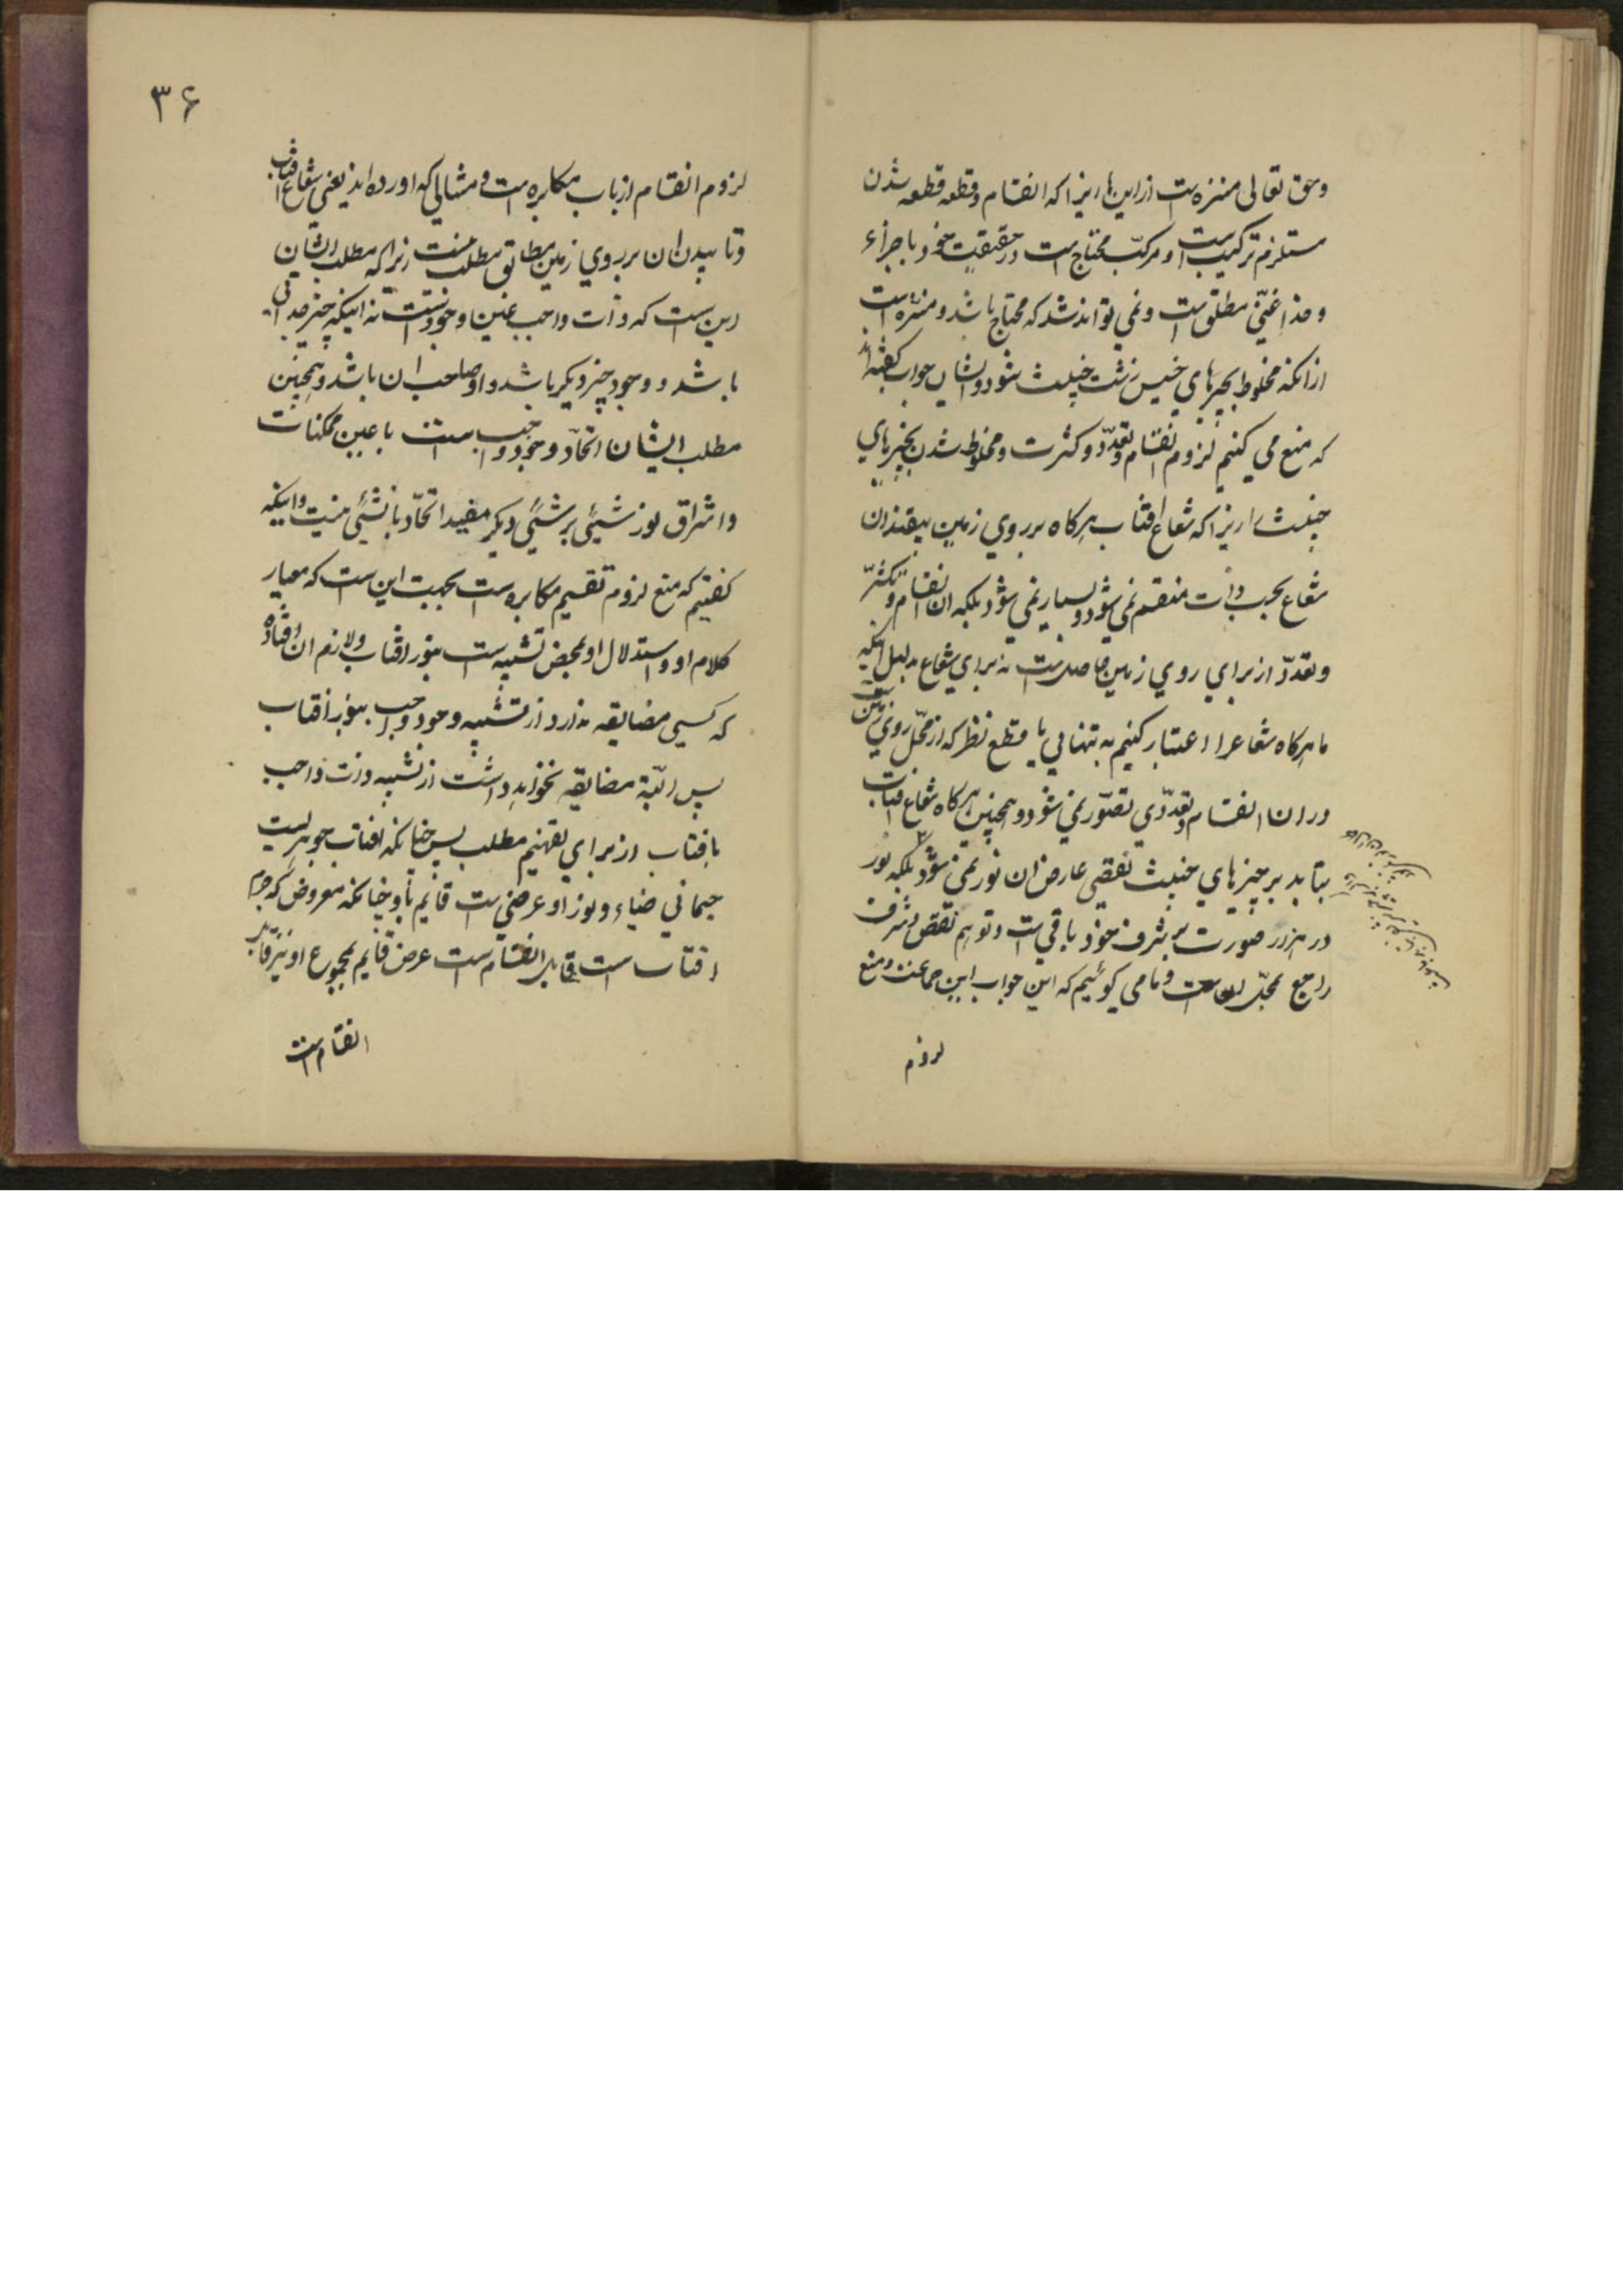 وحق تعالی منزه است از این ها زیرا که انقسام و قطعه قطعه شدن
مستلزم ترکیب است و مرکّب محتاج است در حقیقت خود با جزاء
و خدا غنیّ مطلق است و نمی تواند شد که محتاج باشد و منزه است
از انکه مخلوط بچیزهای خسیس زشت خبیث شود و ایشان جواب گفته اند
که منع می کنیم لزوم انقسام و تعدّد و کثرت و مخلوط شدن بچیزهای
خبیث را زیرا که شعاع افتاب هرکاه بر روی زمین بیفتد ان
شعاع بحسب ذات منقسم نمی شود و بسیار نمی شود بلکه ان انقسام و تکثّر
و تعدّد از برای روی زمین حاصل است نه برای شعاع بدلیل اینکه
ما هرکاه شعاع را اعتبار کنیم به تنهایی با قطع نظر که از محّل روی زمین است
در ان انقسام و تعدّدی تصوّر نمی شود و همچنین هرکاه شعاع افتاب
بتابد بر چیزهای خبیث نقصی عارض ان نور نمی شود بلکه نور
در هر دو صورت بر شرف خود باقی است و توهم نقص و شرف
راجع بمحلّ ان است و ما می کوئیم که این جواب این جماعت و منع
لزوم
۳۶
لزوم انقسام از باب مکابره است و مثالی که اورده اند یعنی شعاع افتاب
و تابیدن ان بر روی زمین مطابق مطلب نیست زیرا که مطلب ایشان
این است که ذات واجب عین وجود است نه اینکه چیز جدائی
باشد و وجود چیز دیگر باشد و او صاحب ان باشد و همچنین
مطلب ایشان اتحّاد وجود واجب است با عین ممکنات
و اشراق نور شیئی بر شیئی دیکر مفید اتحّاد با ان شیئی نیست و اینکه
کفتیم که منع لزوم تقسیم مکابره است بجهت این است که معیار
کلام او و استدلال او بمحض تشبیه است بنور افتاب و لازم ان افتاده
که کسی مضایقه ندارد از تشبیه وجود واجب بنور افتاب
پس البّته مضایقه نخواهد داشت از تشبیه ذات واجب
بافتاب از برای تفهیم مطلب پس چنانکه افتاب جوهریست
جسمانی ضیاء و نور او عرضی است قایم باو چنانکه معروض که جرم
افتاب است قابل انقسام است عرض قایم بمجموع او نیز قابل
انقسام است